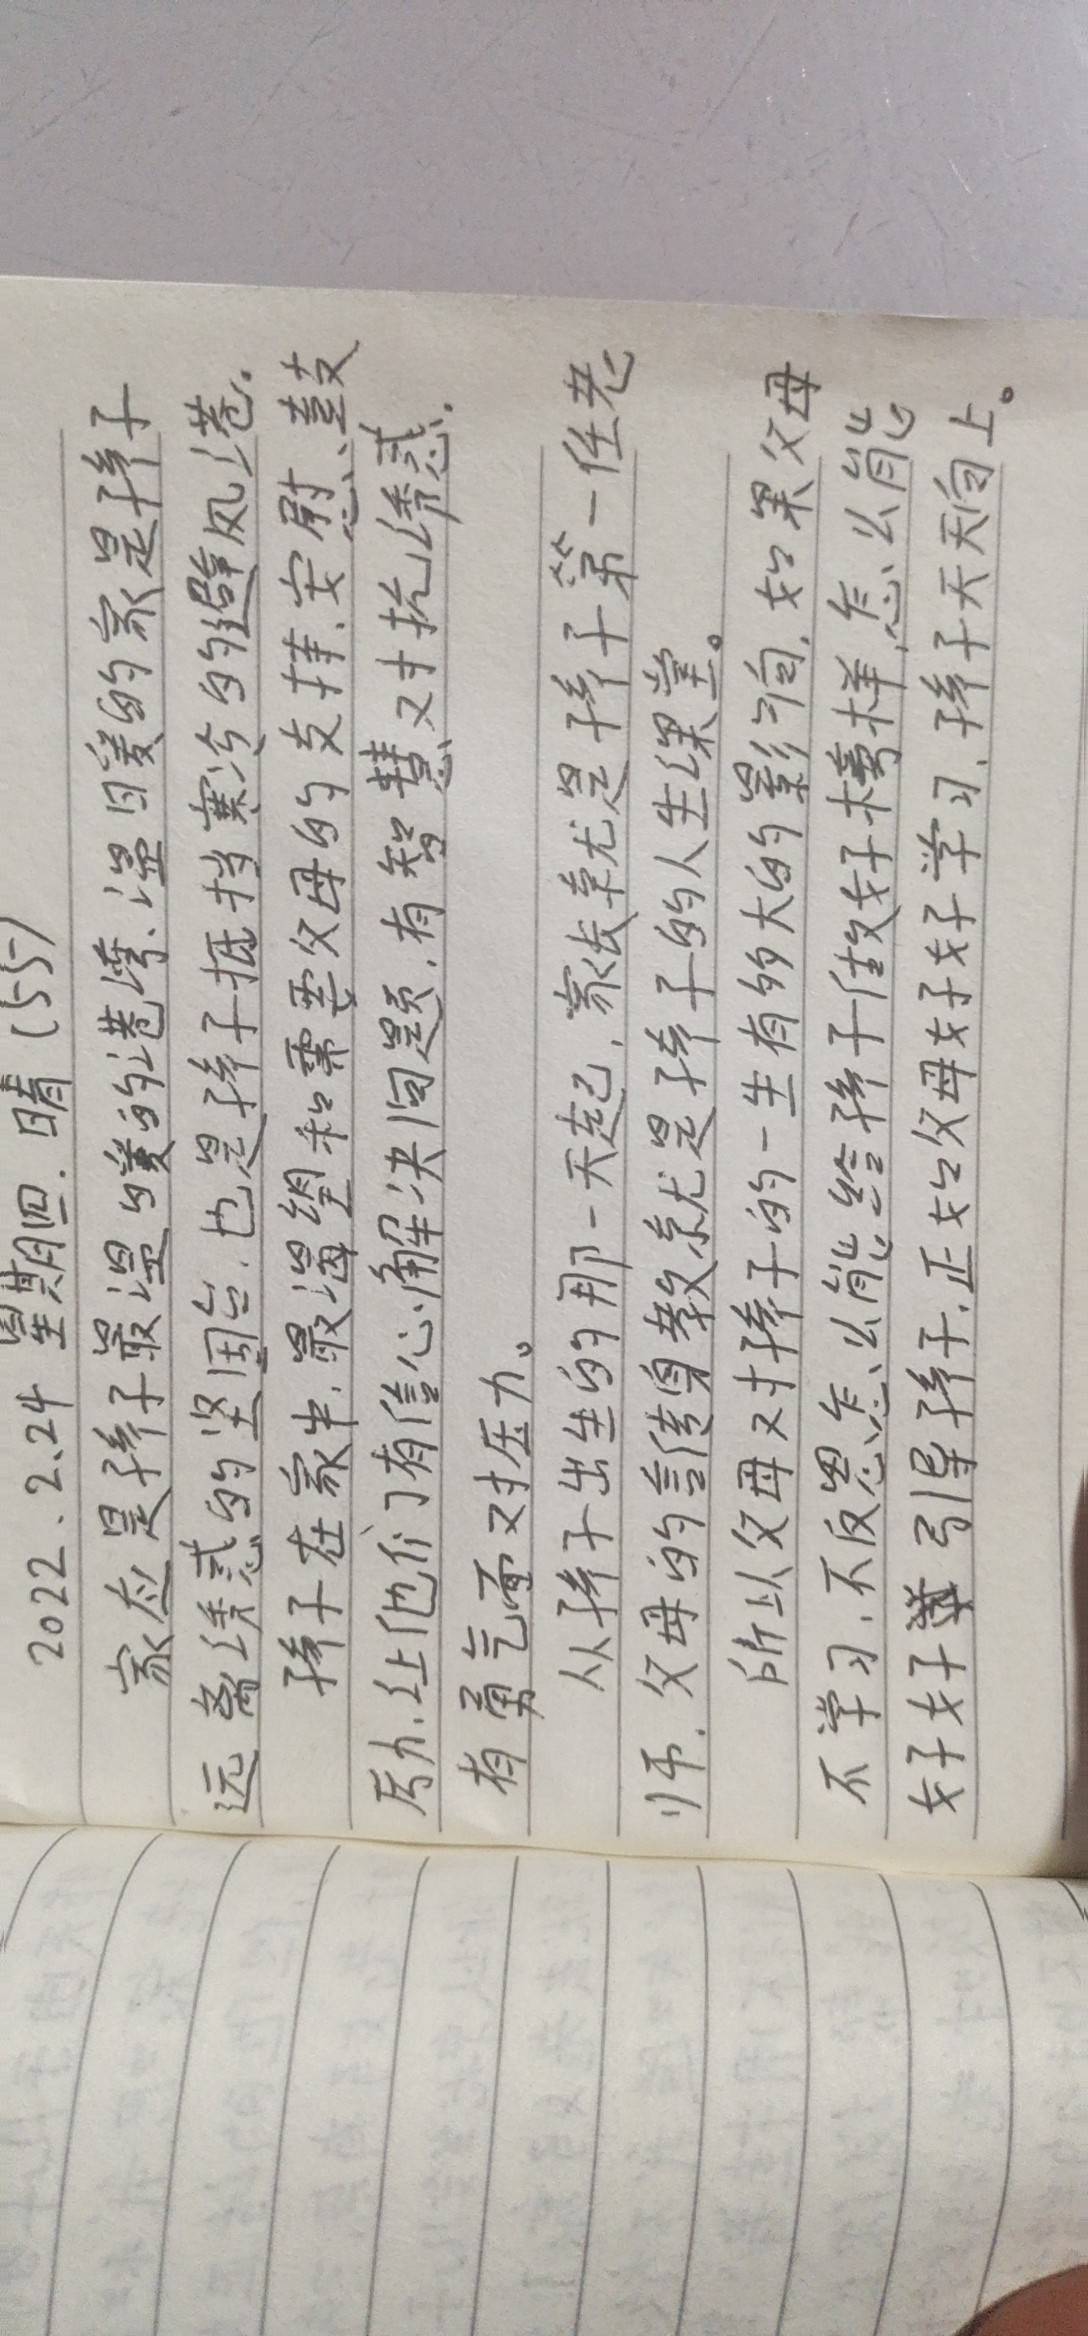 2022.2.24 星期四.晴 (55)
家应是孩子最温暖的港湾、温暖的家是孩子
远离诱惑的坚固台.也是孩子抵挡寒冷的避风港.
孩子在家中.最渴望和需要父母的支持、安慰、鼓
励.让他们有信心解决问题.有智慧对抗诱惑.
有勇气面对压力。
从孩子出生的那一天起,家长就是孩子第一任老
师.父母的言传身教就是孩子的人生课堂。
所以父母对孩子的一生有多大的影响.如果父母
不学习.不反思怎么能给孩子做好榜样,怎么能
好好 引导孩子.正如父母好好学习、孩子天天向上。